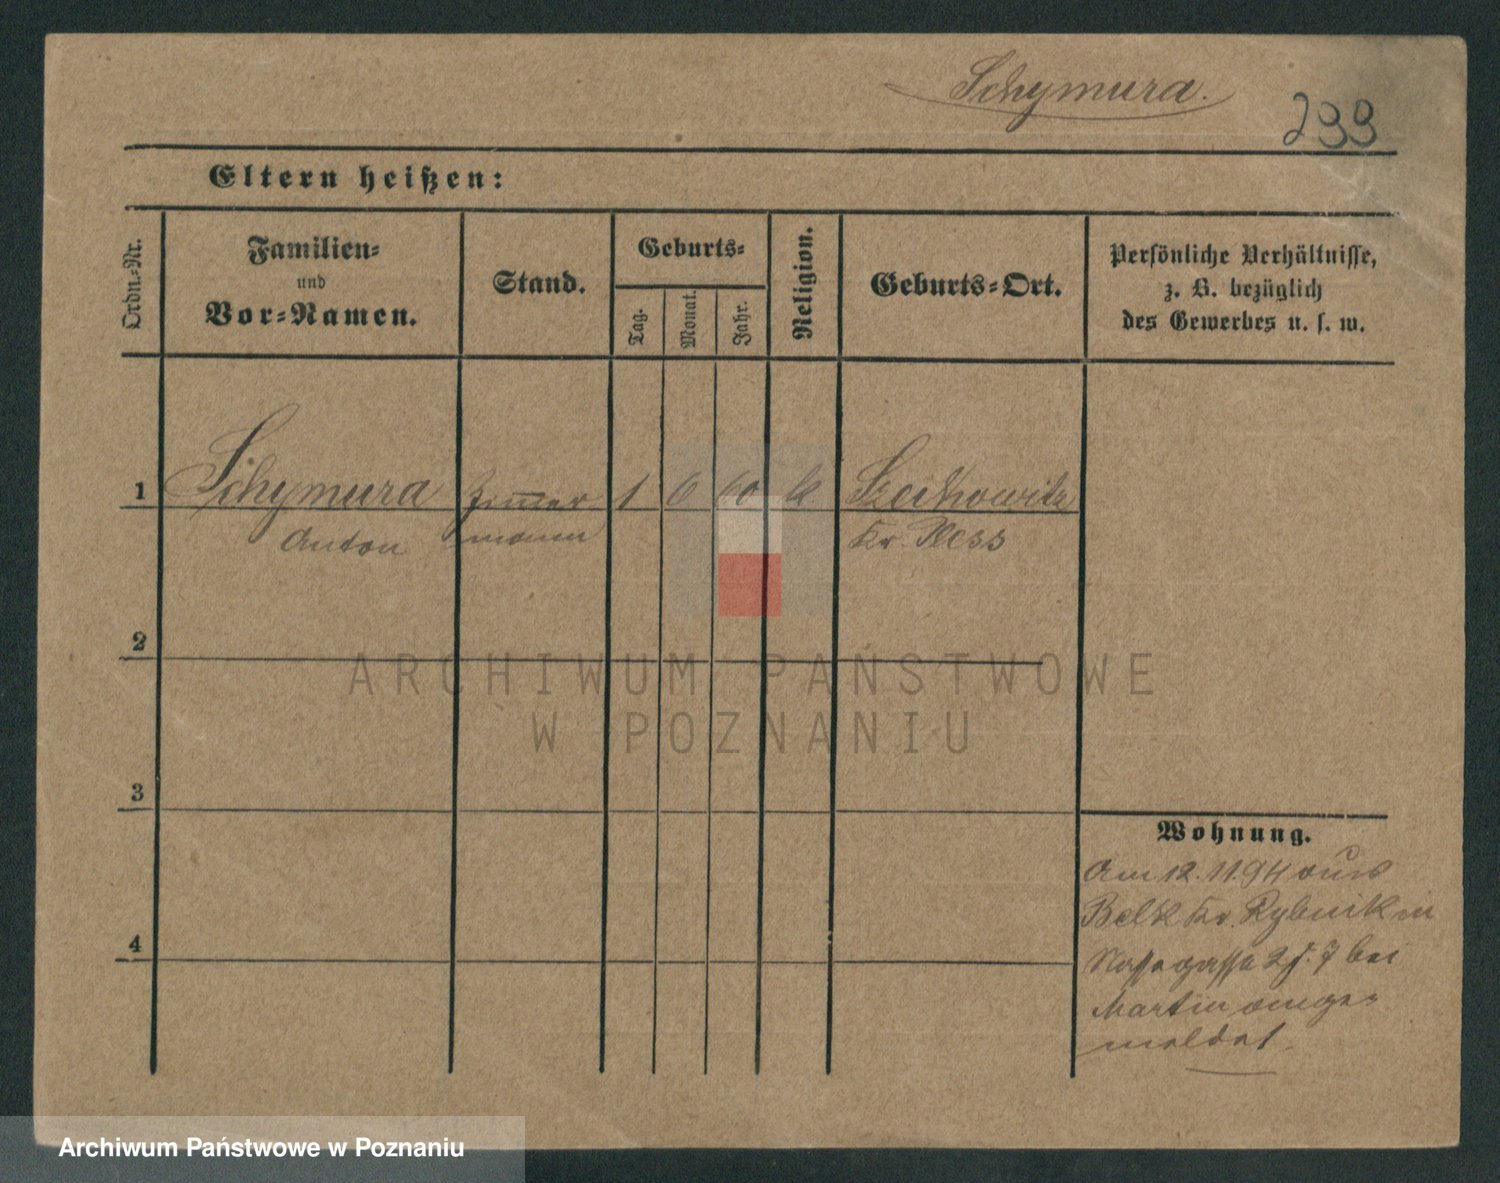 Schymura.
299
Eltern heißen:
Ordn.-Nr.
Familien-
und
Vor-Namen.
Stand.
Geburts-
Tag.
Monat.
Jahr.
Religion.
Geburts-Ort.
Persönliche Verhältnisse,
z. B. bezüglich
des Gewerbes u. s. w.
1 Schymura Zimmer 1 6 60 k
Anton mann Kr. Pless
2
ARCHIWUM PAŃSTWOWE
W POZNANIU
3
Wohnung.
Am 12.11.94 aus
Belk Kr. Rybnik in
4
7 bei
Martin ange-
meldet.
Archiwum Państwowe w Poznaniu